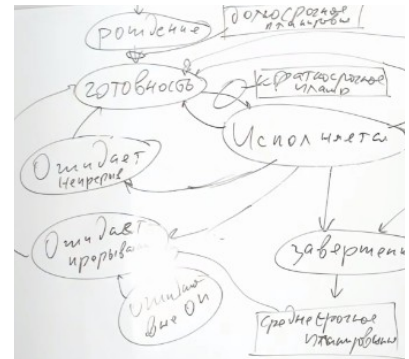 рождение
долгосрочное
планировы
готовность
краткосрочное
плано
Исполняется
Ожидает
непрерыв
Ожидает
прерыван
завершени
Ожидает
вне ОП
среднесрочное
планирован